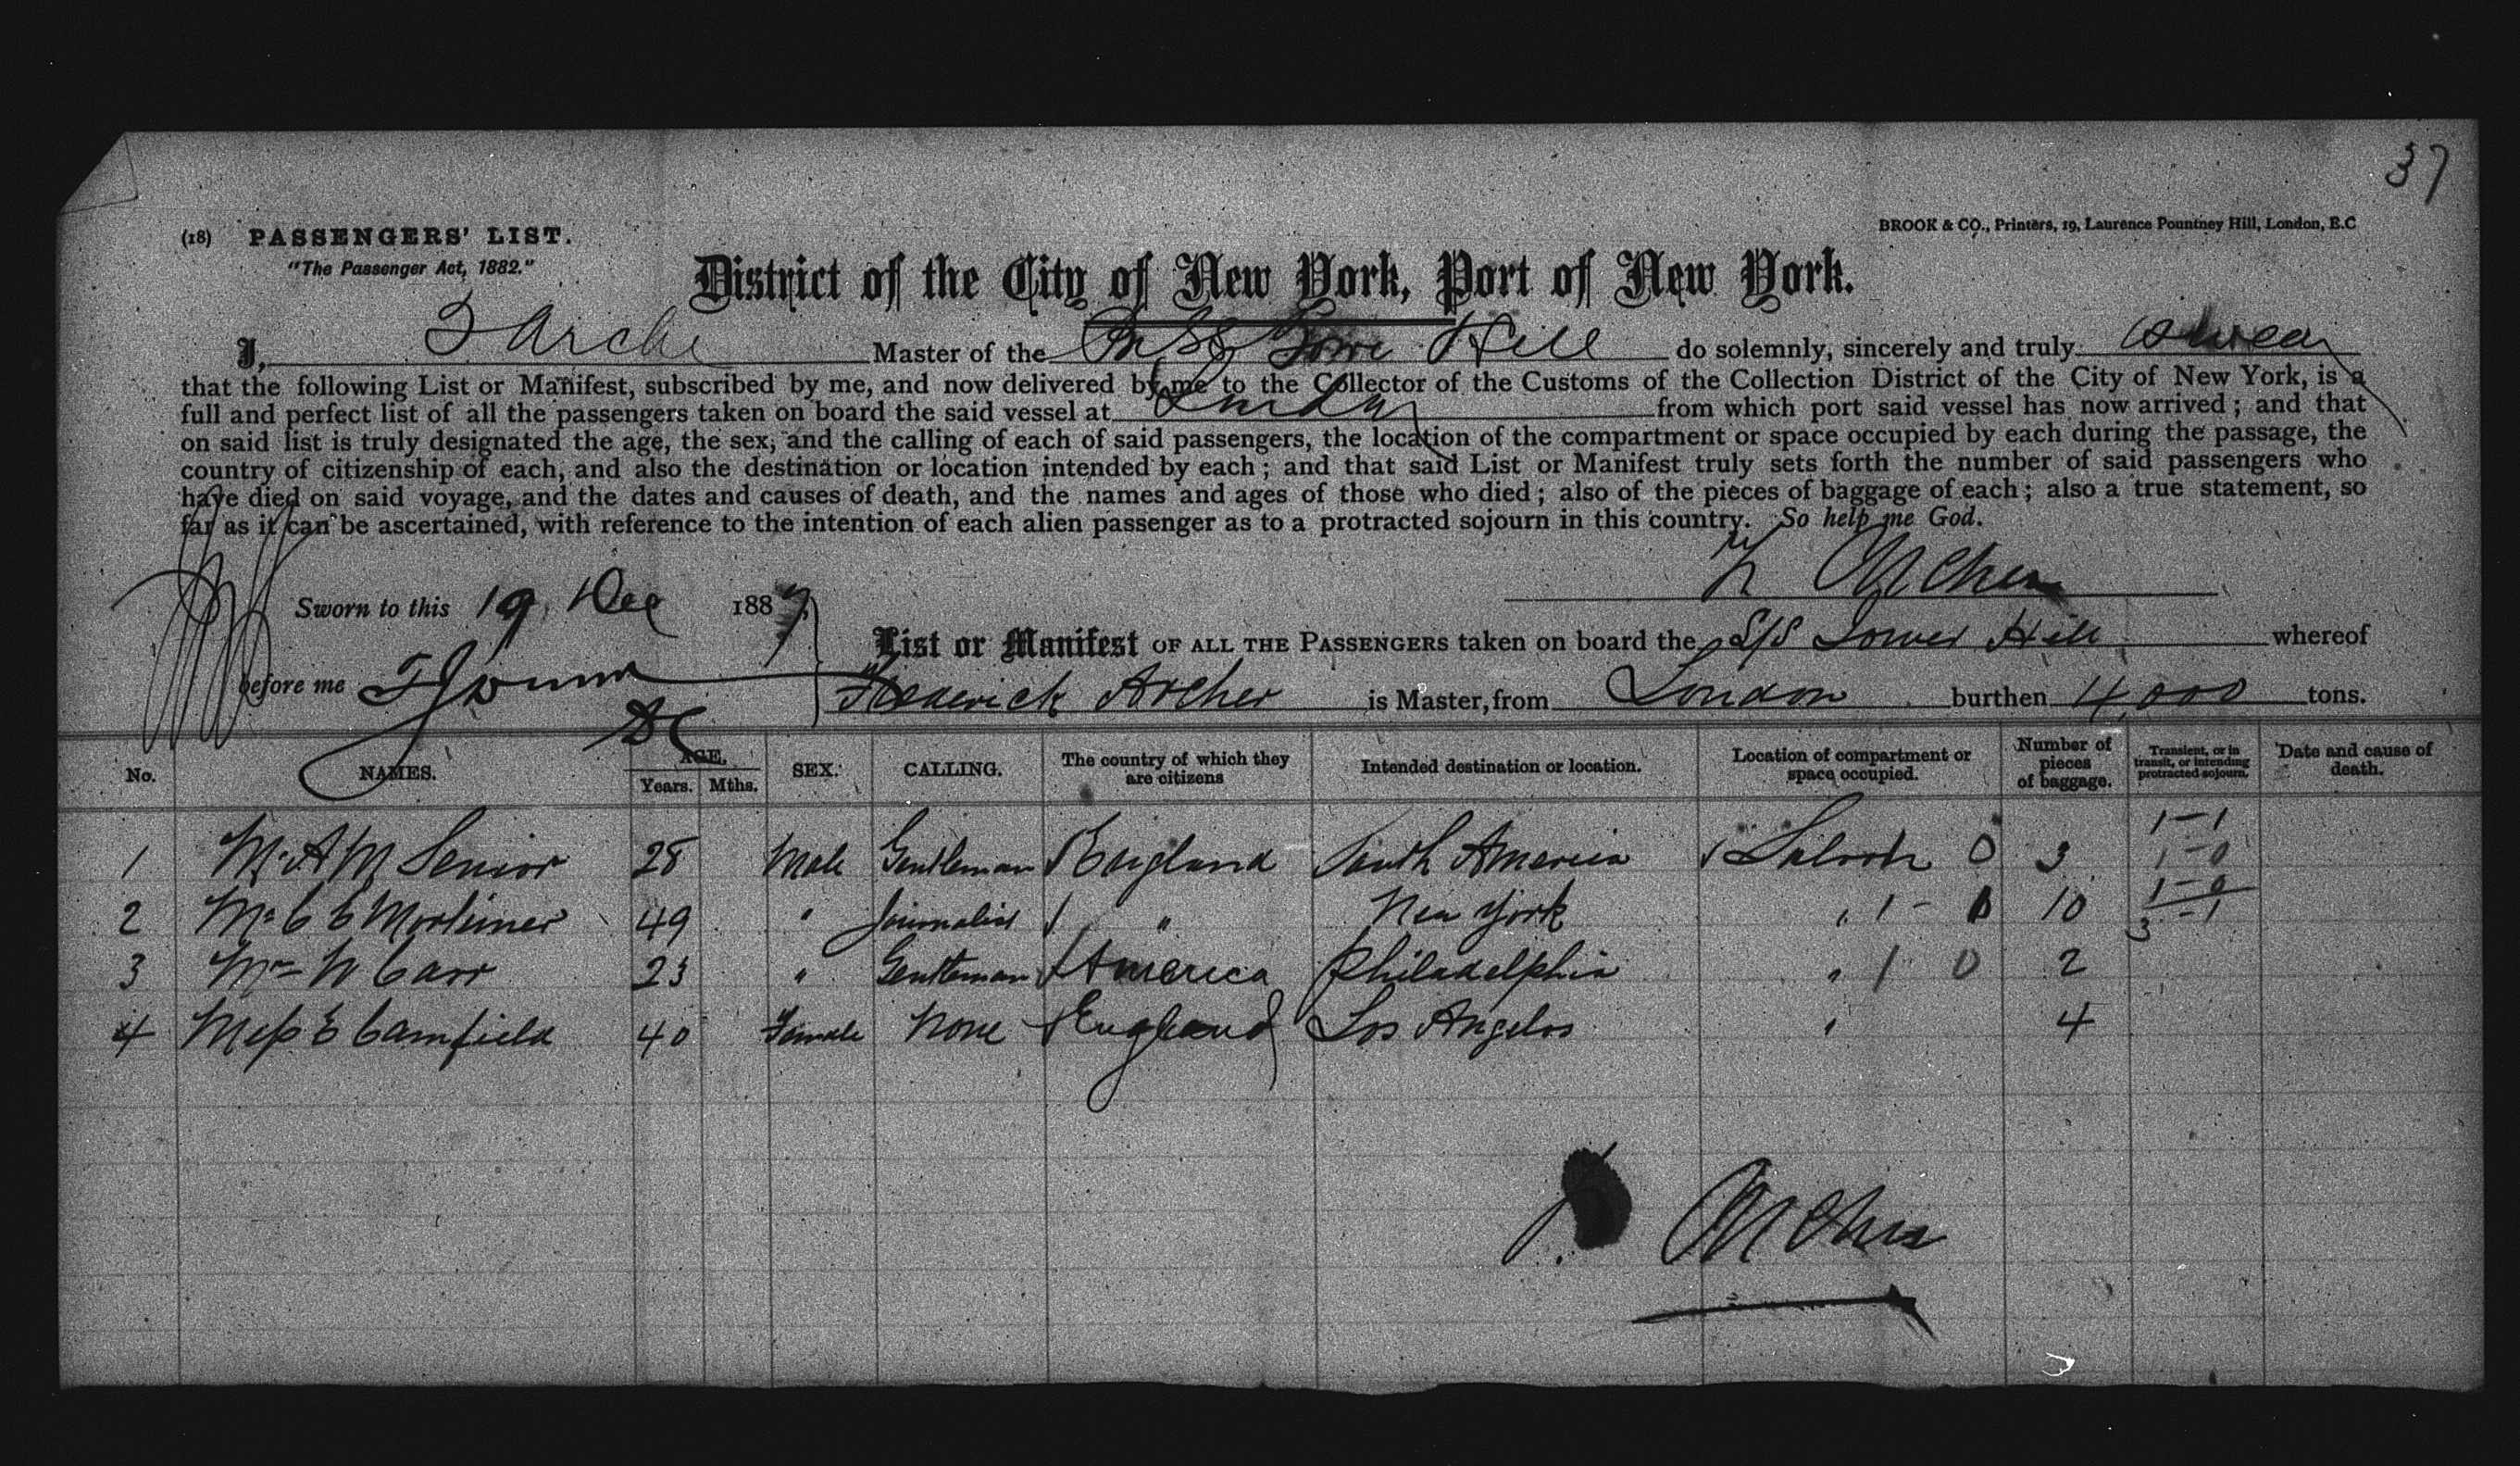 37
(18) PASSENGERS' LIST. BROOK & CO., Printers, 19, Laurence Pountney Hill, London, E.C
"The Passenger Act, 1882."
District of the City of New York, Port of New York.
I, F Archer Master of the Br SS Tower Hill do solemnly, sincerely and truly swear
that the following List or Manifest, subscribed by me, and now delivered by me to the Collector of the Customs of the Collection District of the City of New York, is a
full and perfect list of all the passengers taken on board the said vessel at London from which port said vessel has now arrived; and that
on said list is truly designated the age, the sex, and the calling of each of said passengers, the location of the compartment or space occupied by each during the passage, the
country of citizenship of each, and also the destination or location intended by each; and that said List or Manifest truly sets forth the number of said passengers who
have died on said voyage, and the dates and causes of death, and the names and ages of those who died; also of the pieces of baggage of each; also a true statement, so
far as it can be ascertained, with reference to the intention of each alien passenger as to a protracted sojourn in this country. So help me God.
F Archer
Sworn to this 19 Dec 1887
List or Manifest OF ALL THE PASSENGERS taken on board the S/S Tower Hill whereof
before me
Frederick Archer is Master, from London burthen 4,000 tons.
No. NAMES. AGE. Years. Mths. SEX. CALLING. The country of which they are citizens Intended destination or location. Location of compartment or space occupied. Number of pieces of baggage. Transient, or in transit, or intending protracted sojourn. Date and cause of death.
1 Mr A M Senior 28 Male Gentleman England South America Saloon 0 3 1-1
1-0
1-0
2 Mr C E Mortimer 49 " Journalist " New York " 1 - 10 3-1
3 Mr W Carr 23 " Gentleman America Philadelphia " 1 0 2
4 Miss E Camfield 40 Female None England Los Angelos " 4
F. Archer